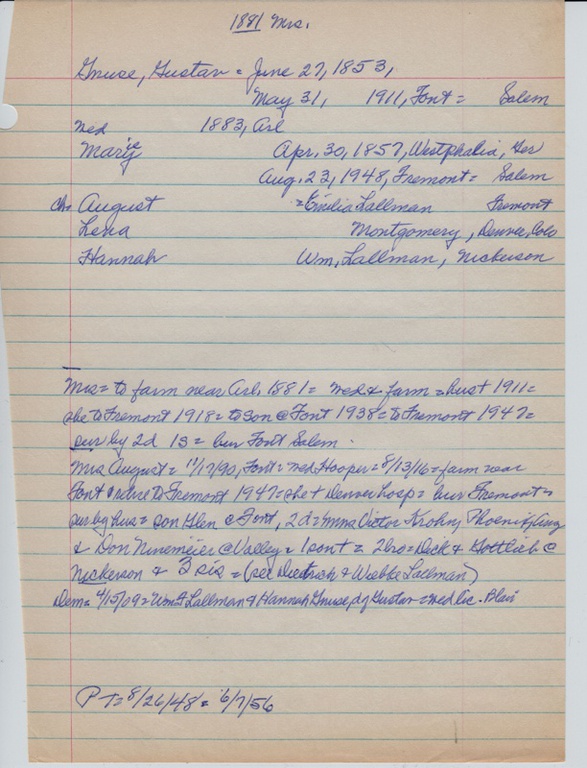 1881 Mrs.
Gnuse, Gustav = June 27, 1853,
May 31, 1911, Font = Salem
wed 1883, Arl
Marie Apr. 30, 1857, Westphalia, Ger
Aug. 23, 1948, Fremont = Salem
ch. August = Emilia Lallman Fremont
Lena Montgomery, Denver, Colo
Hannah Wm. Lallman, Nickerson
Mrs = to farm near Arl. 1881 = wed & farm = hust 1911 =
she to Fremont 1918 = to son @ Font 1938 = to Fremont 1947 =
sur by 2d 1s = bur Font Salem.
Mrs August = 11/17/90, Font = wed Hooper = 8/13/16 = farm near
Font & retire to Fremont 1947 = she + Denver hosp = bur Fremont =
sur by hus = son Glen @ Font, 2d = Mrs Victor Krohn, Phoenix,
& Don Ninemeier @ Valley = 1 son + = 2 bro = Dick & Gottlieb @
Nickerson & 3 sis = (see Diedrich & Wiebke Lallman)
Dem = 4/15/09 = Wm Lallman & Hannah Gnuse, dg Gustav = wed lic. Blair
PT = 8/26/48 = 6/7/56